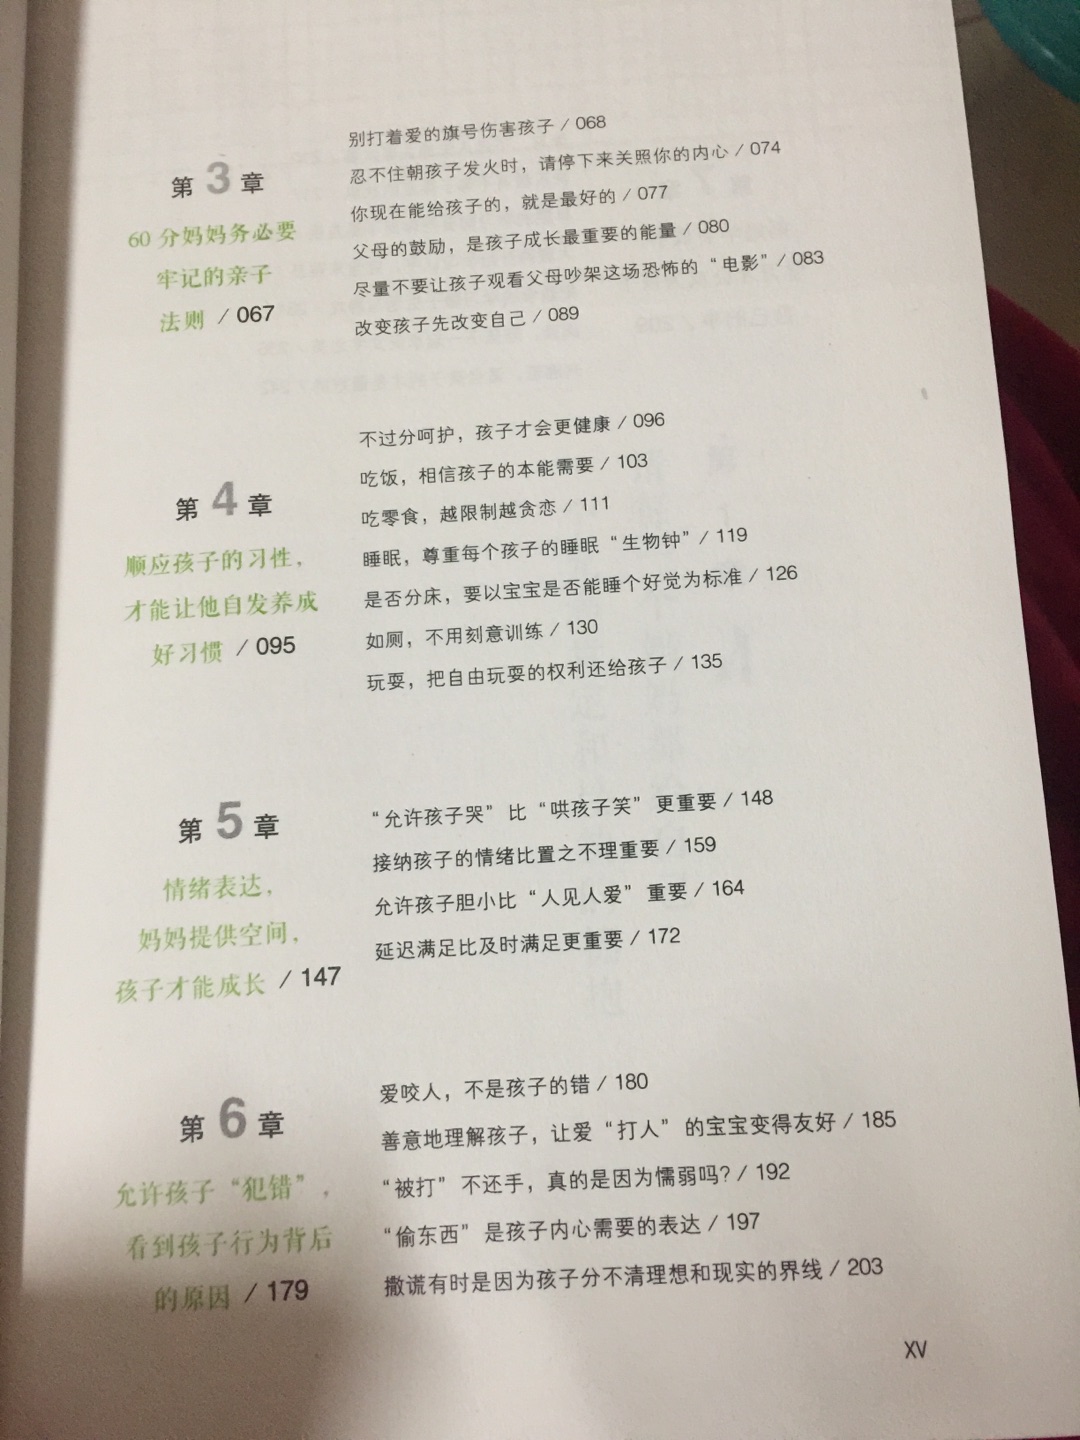 第3章
60分妈妈务必要
牢记的亲子
法则 / 067
别打着爱的旗号伤害孩子 / 068
忍不住朝孩子发火时，请停下来关照你的内心 / 074
你现在能给孩子的，就是最好的 / 077
父母的鼓励，是孩子成长最重要的能量 / 080
尽量不要让孩子观看父母吵架这场恐怖的“电影” / 083
改变孩子先改变自己 / 089
第4章
顺应孩子的习性，
才能让他自发养成
好习惯 / 095
不过分呵护，孩子才会更健康 / 096
吃饭，相信孩子的本能需要 / 103
吃零食，越限制越贪恋 / 111
睡眠，尊重每个孩子的睡眠“生物钟” / 119
是否分床，要以宝宝是否能睡个好觉为标准 / 126
如厕，不用刻意训练 / 130
玩耍，把自由玩耍的权利还给孩子 / 135
第5章
情绪表达，
妈妈提供空间，
孩子才能成长 / 147
“允许孩子哭”比“哄孩子笑”更重要 / 148
接纳孩子的情绪比置之不理重要 / 159
允许孩子胆小比“人见人爱”重要 / 164
延迟满足比及时满足更重要 / 172
第6章
允许孩子“犯错”，
看到孩子行为背后
的原因 / 179
爱咬人，不是孩子的错 / 180
善意地理解孩子，让爱“打人”的宝宝变得友好 / 185
“被打”不还手，真的是因为懦弱吗? / 192
“偷东西”是孩子内心需要的表达 / 197
撒谎有时是因为孩子分不清理想和现实的界线 / 203
XV